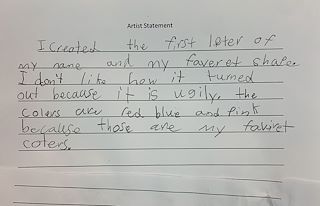 Artist Statement
I created the first leter of
my name and my faveret shape.
I don't like how it turned
out because it is ugily. the
colers are red blue and pink
because those are my faviret
colers.